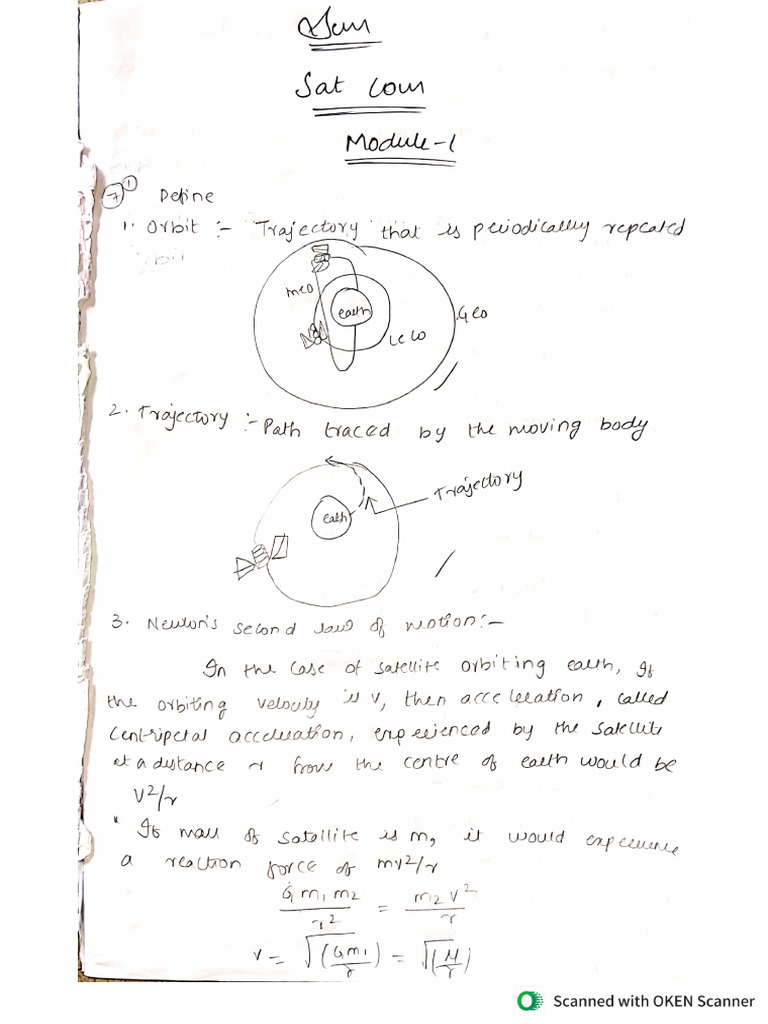 Sat Com
Module-1
7 1 Define
1. Orbit :- Trajectory that is periodically repeated
MEO
earth
GEO
LEO
2. Trajectory :- Path traced by the moving body
Trajectory
earth
3. Newton's second law of motion:-
In the case of satellite orbiting earth, if
the orbiting velocity is v, then acceleration, called
centripetal acceleration, experienced by the satellite
at a distance r from the centre of earth would be
v²/r
* If mass of satellite is m, it would experience
a reaction force of mv²/r
G m₁ m₂ / r² = m₂ v² / r
v = √(Gm₁/r) = √(μ/r)
Scanned with OKEN Scanner